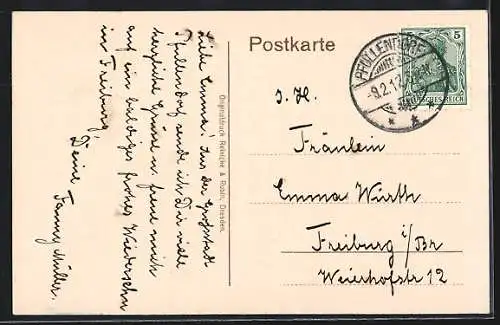 Liebe Emma! Aus der Großstadt
Pfullendorf sende ich Dir viele
herzliche Grüße u. freue mich
auf ein baldiges frohes Wiedersehn
in Freiburg.
Deine
Fanny Müller.
Originaldruck Reinicke & Rubin, Dresden.
Postkarte
PFULLENDORF
-9.2.12
5
DEUTSCHES REICH
S. H.
Fräulein
Emma Wirth
Freiburg i/Br
Weierhofstr 12